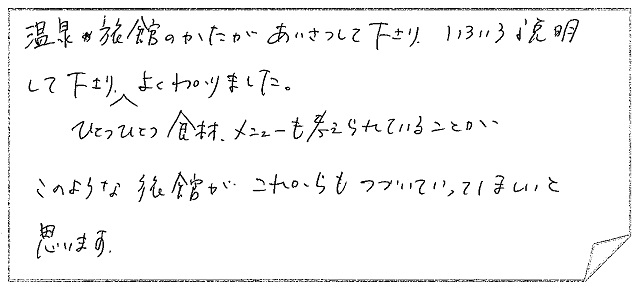 温泉旅館のかたがあいさつして下さり、いろいろ説明
して下さり、よくわかりました。
ひとつひとつ食材、メニューも考えられていることがい
このような旅館がこれからもつづいていってほしいと
思います。